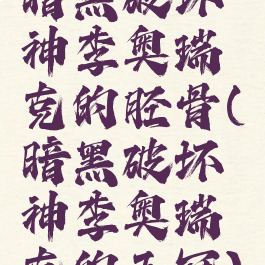 暗黑破坏
神李奥瑞
克的胫骨(
暗黑破坏
神李奥瑞
克的王冠)